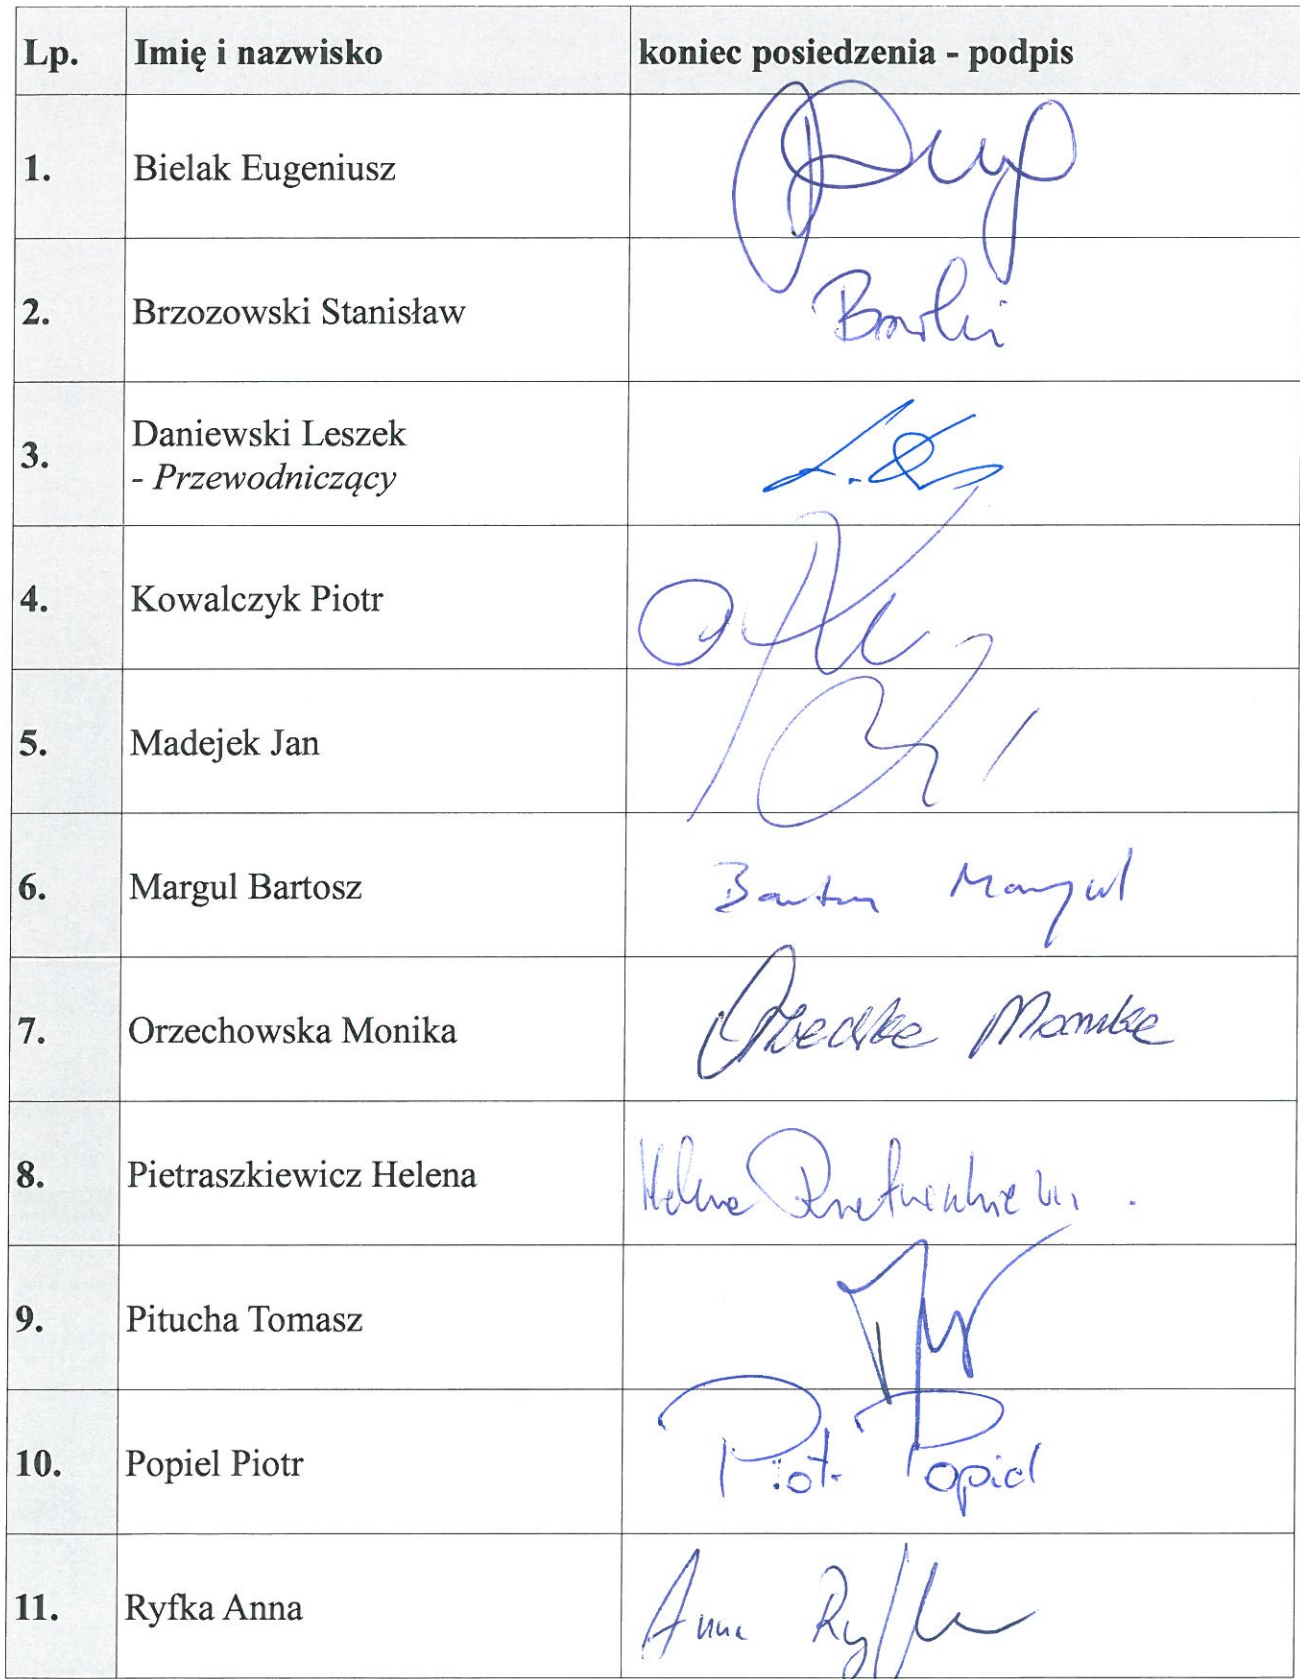 Lp. Imię i nazwisko koniec posiedzenia - podpis
1. Bielak Eugeniusz
2. Brzozowski Stanisław
3. Daniewski Leszek
- Przewodniczący
4. Kowalczyk Piotr
5. Madejek Jan
6. Margul Bartosz Margul
7. Orzechowska Monika
8. Pietraszkiewicz Helena Helena
9. Pitucha Tomasz
10. Popiel Piotr Piotr Popiel
11. Ryfka Anna Anna Ryfka